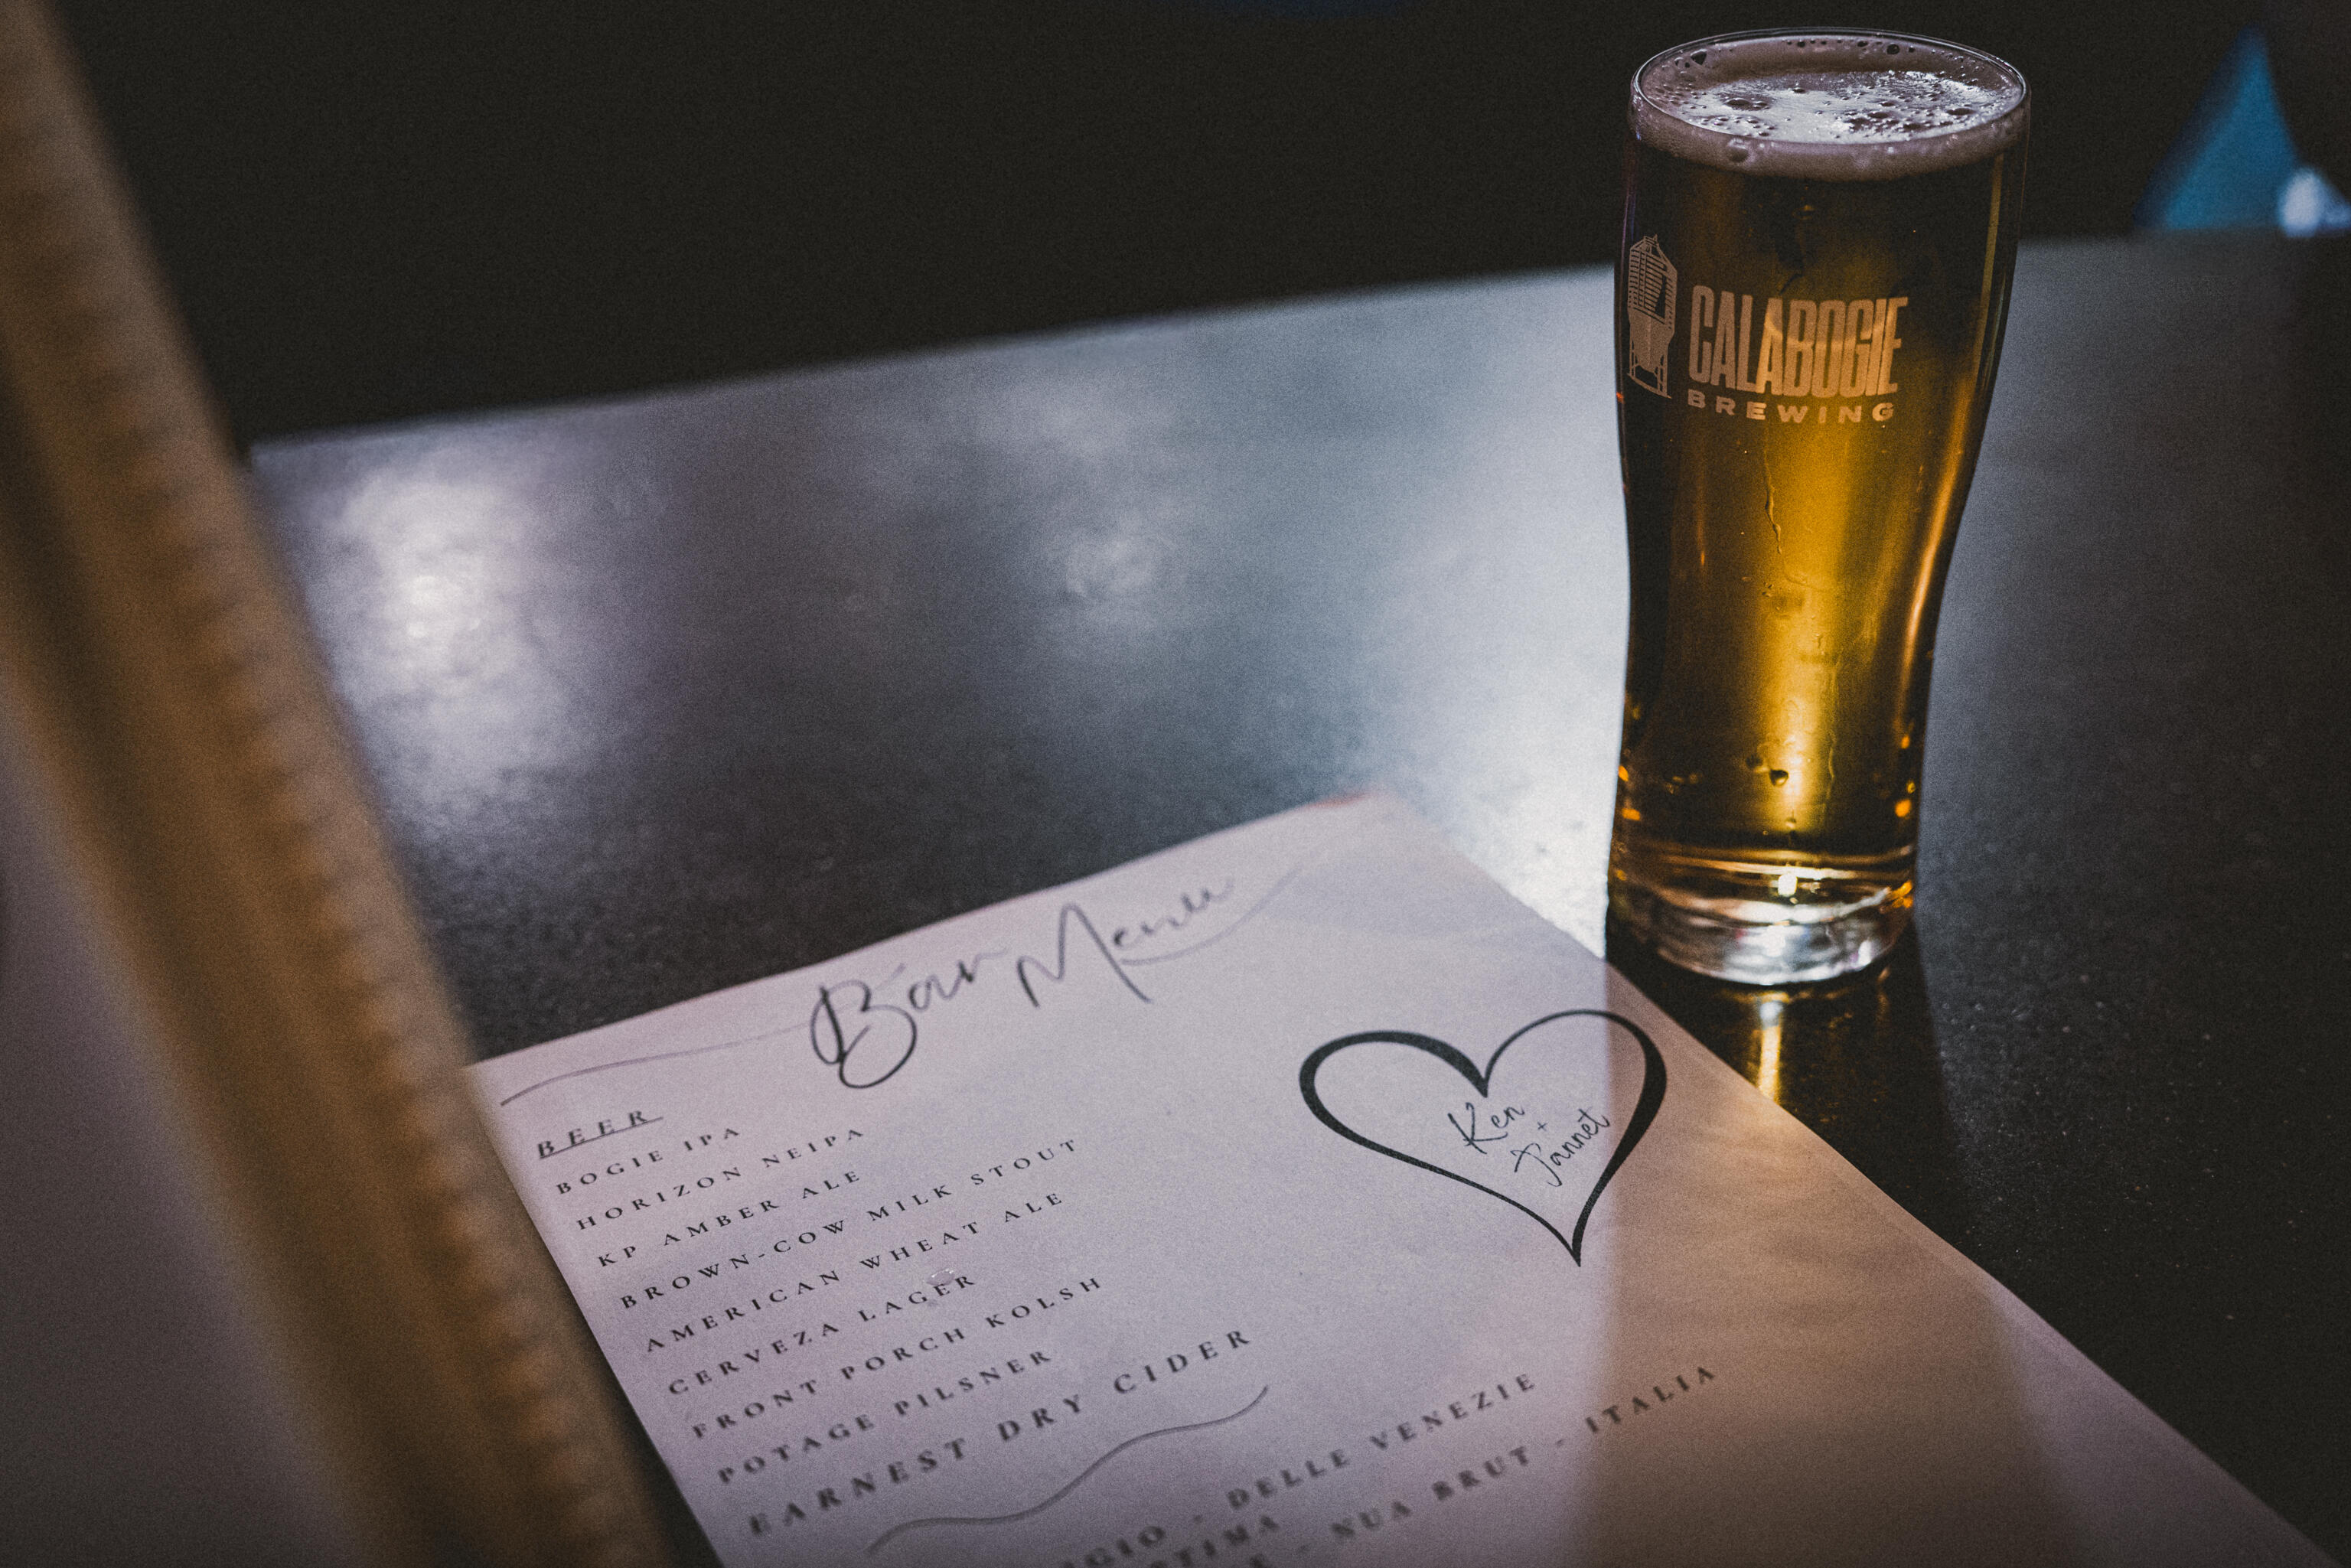 CALABOGIE
BREWING
Bar Menu
Ken
+
Jannet
BEER
BOGIE IPA
HORIZON NEIPA
KP AMBER ALE
BROWN-COW MILK STOUT
AMERICAN WHEAT ALE
CERVEZA LAGER
FRONT PORCH KOLSH
POTAGE PILSNER
EARNEST DRY CIDER
- DELLE VENEZIE
- NUA BRUT - ITALIA